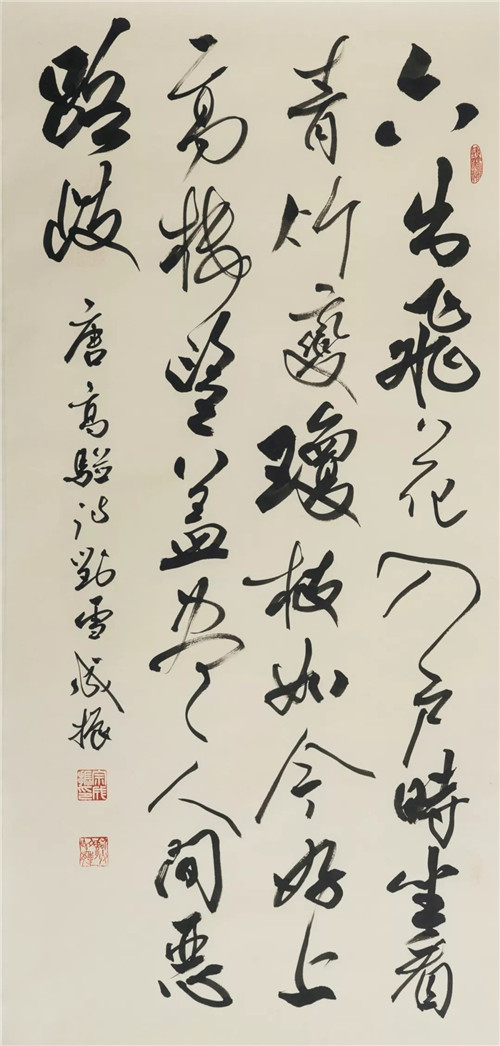 六出飛花入戶時坐看
青竹變瓊枝如今好上
高樓望盖尽人間惡
路歧
唐高駢詩對雪成振